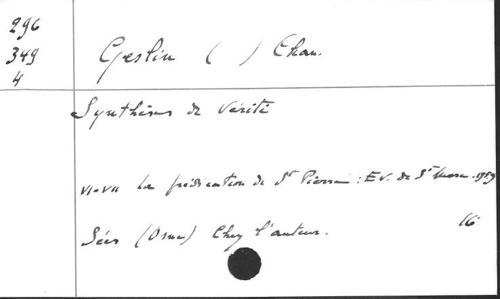 296
349
4
Geslin ( ) Chan.
Synthèses de Vérité
VI-VII La prédication de St Pierre : Ev. de St Marc. 1959
Sées (Orne) Chez l'auteur. 16